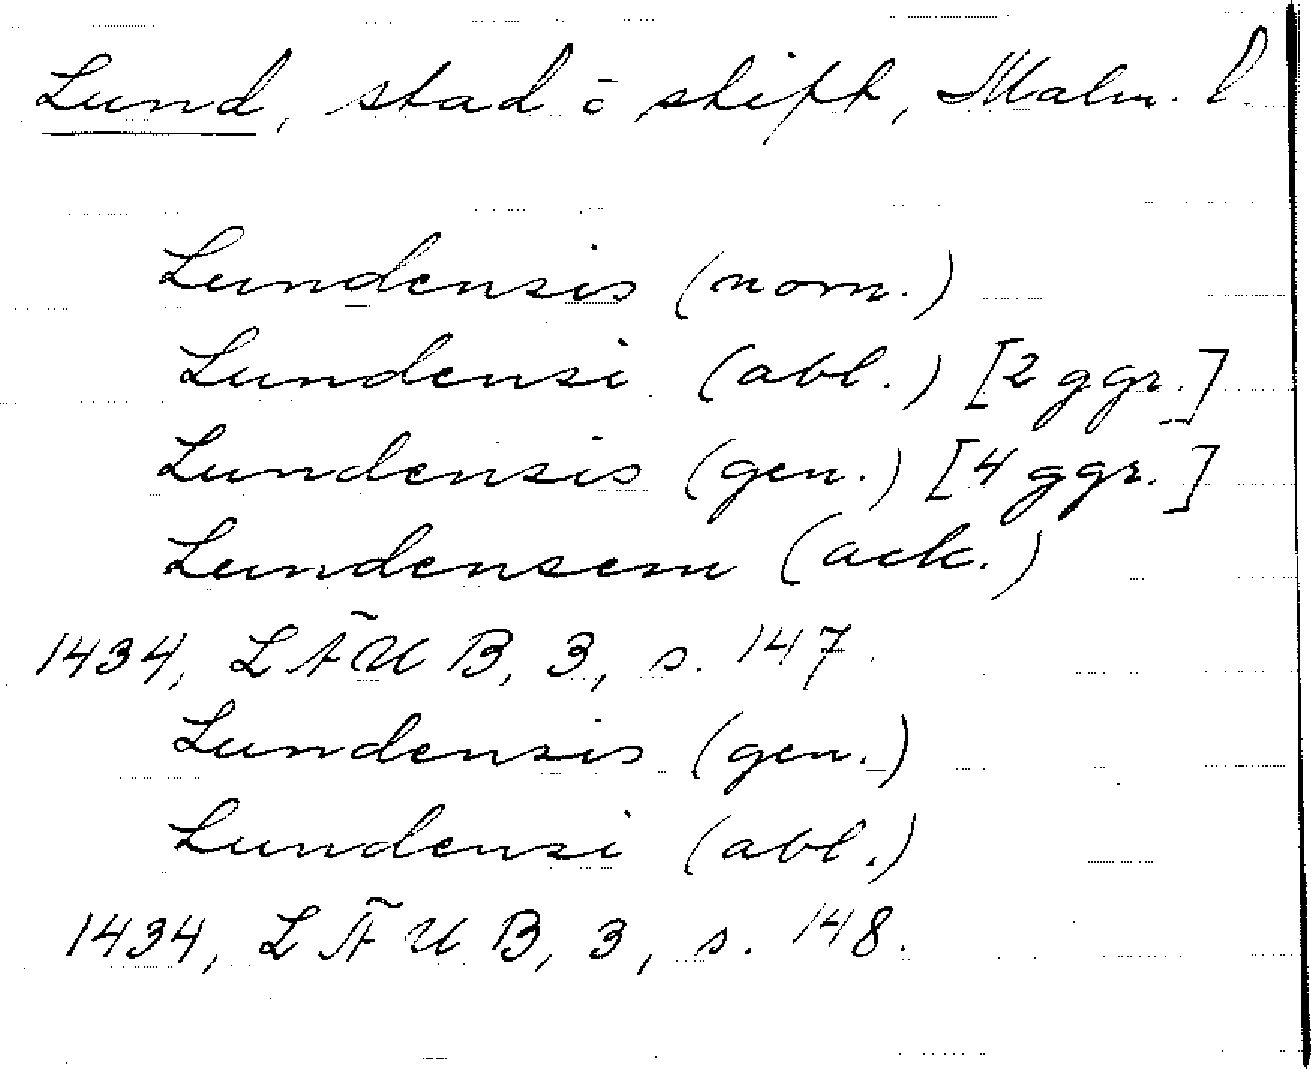 Lund, stad o stift, Malm. l.
Lundensis (nom.)
Lundensi (abl.) [2 ggr.]
Lundensis (gen.) [4 ggr.]
Lundensem (ack.)
1434, LÄUB, 3, s. 147.
Lundensis (gen.)
Lundensi (abl.)
1434, LÄUB, 3, s. 148.